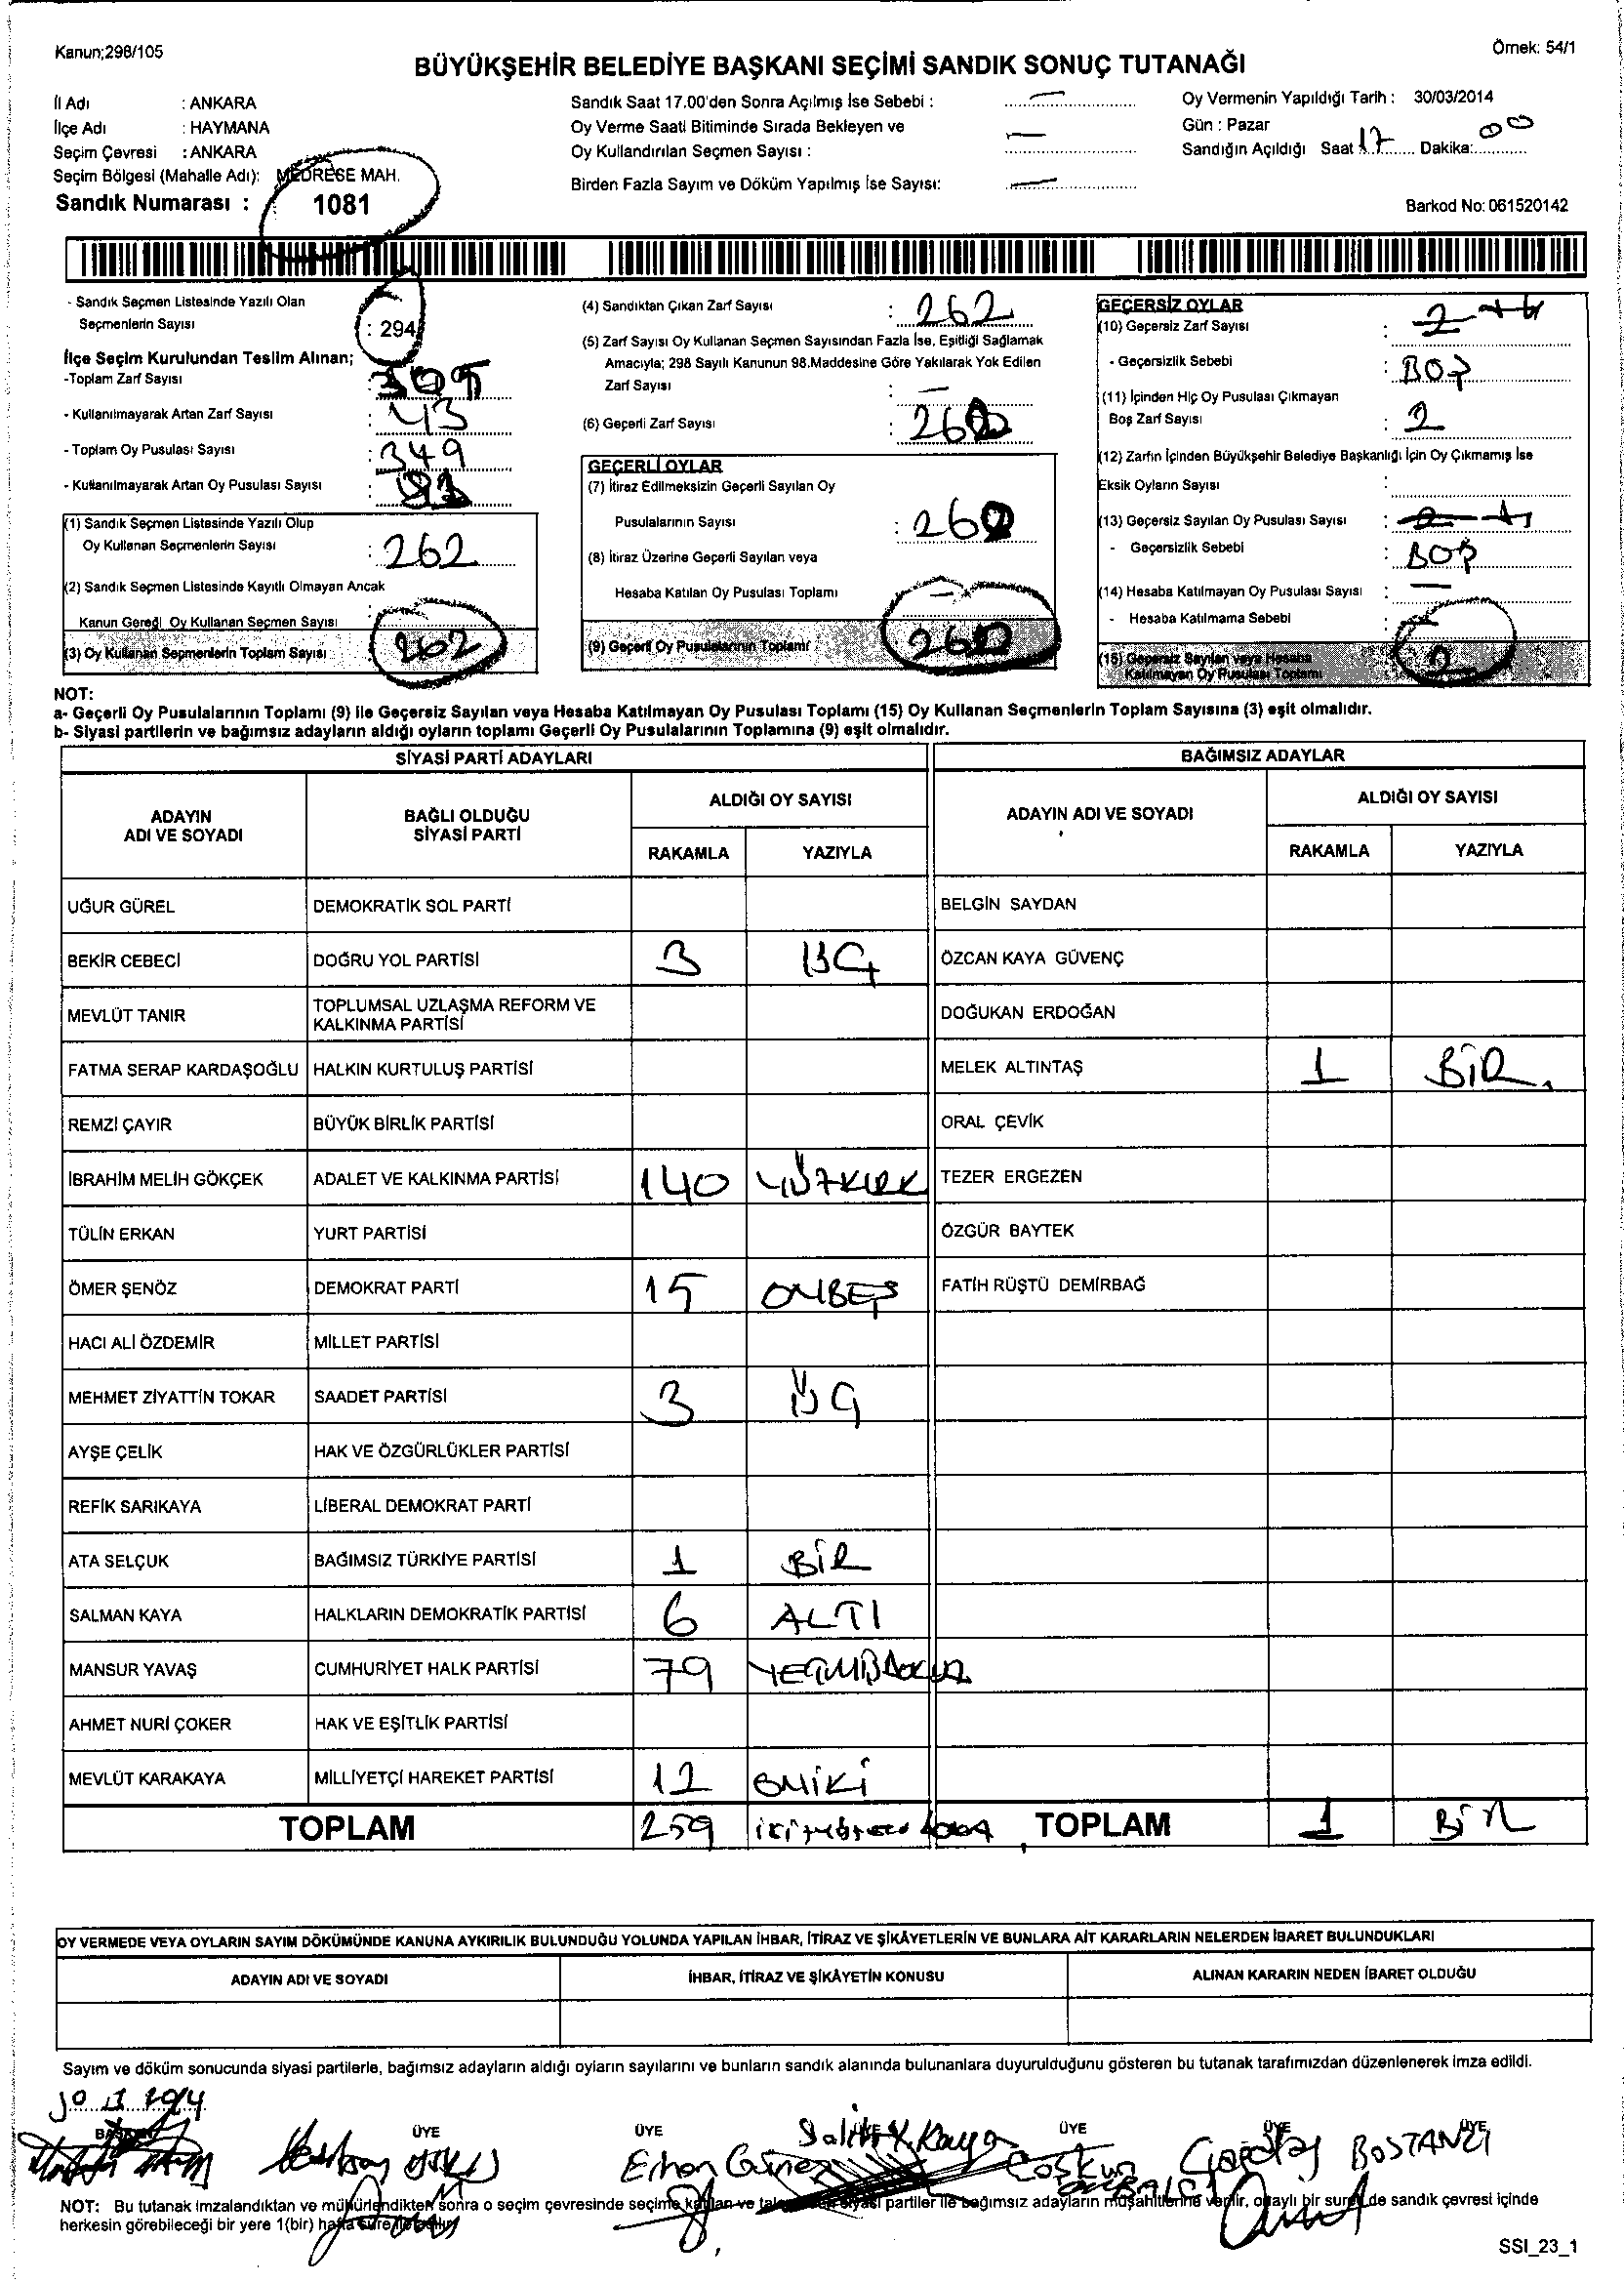 Kanun;298/105
Örnek: 54/1
BÜYÜKŞEHİR BELEDİYE BAŞKANI SEÇİMİ SANDIK SONUÇ TUTANAĞI
İl Adı : ANKARA
İlçe Adı : HAYMANA
Seçim Çevresi : ANKARA
Seçim Bölgesi (Mahalle Adı): MEDRESE MAH.
Sandık Numarası : 1081
Sandık Saat 17.00'den Sonra Açılmış İse Sebebi : —
Oy Verme Saati Bitiminde Sırada Bekleyen ve
Oy Kullandırılan Seçmen Sayısı : —
Birden Fazla Sayım ve Döküm Yapılmış İse Sayısı: —
Oy Vermenin Yapıldığı Tarih : 30/03/2014
Gün : Pazar
Sandığın Açıldığı Saat 17 Dakika: 00
Barkod No: 061520142
- Sandık Seçmen Listesinde Yazılı Olan
Seçmenlerin Sayısı : 294
İlçe Seçim Kurulundan Teslim Alınan;
-Toplam Zarf Sayısı :
- Kullanılmayarak Artan Zarf Sayısı : 43
- Toplam Oy Pusulası Sayısı : 349
- Kullanılmayarak Artan Oy Pusulası Sayısı :
(1) Sandık Seçmen Listesinde Yazılı Olup
Oy Kullanan Seçmenlerin Sayısı : 262
(2) Sandık Seçmen Listesinde Kayıtlı Olmayan Ancak
Kanun Gereği Oy Kullanan Seçmen Sayısı :
(3) Oy Kullanan Seçmenlerin Toplam Sayısı 262
(4) Sandıktan Çıkan Zarf Sayısı : 262
(5) Zarf Sayısı Oy Kullanan Seçmen Sayısından Fazla İse, Eşitliği Sağlamak
Amacıyla; 298 Sayılı Kanunun 98.Maddesine Göre Yakılarak Yok Edilen
Zarf Sayısı : —
(6) Geçerli Zarf Sayısı : 260
GEÇERLİ OYLAR
(7) İtiraz Edilmeksizin Geçerli Sayılan Oy
Pusulalarının Sayısı : 260
(8) İtiraz Üzerine Geçerli Sayılan veya
Hesaba Katılan Oy Pusulası Toplamı —
(9) Geçerli Oy Pusulalarının Toplamı 260
GEÇERSİZ OYLAR
(10) Geçersiz Zarf Sayısı : 2
- Geçersizlik Sebebi : BOŞ
(11) İçinden Hiç Oy Pusulası Çıkmayan
Boş Zarf Sayısı : 2
(12) Zarfın İçinden Büyükşehir Belediye Başkanlığı İçin Oy Çıkmamış İse
Eksik Oyların Sayısı :
(13) Geçersiz Sayılan Oy Pusulası Sayısı : 2
- Geçersizlik Sebebi : BOŞ
(14) Hesaba Katılmayan Oy Pusulası Sayısı : —
- Hesaba Katılmama Sebebi :
(15) Geçersiz Sayılan veya Hesaba
Katılmayan Oy Pusulası Toplamı 2
NOT:
a- Geçerli Oy Pusulalarının Toplamı (9) ile Geçersiz Sayılan veya Hesaba Katılmayan Oy Pusulası Toplamı (15) Oy Kullanan Seçmenlerin Toplam Sayısına (3) eşit olmalıdır.
b- Siyasi partilerin ve bağımsız adayların aldığı oyların toplamı Geçerli Oy Pusulalarının Toplamına (9) eşit olmalıdır.
SİYASİ PARTİ ADAYLARI BAĞIMSIZ ADAYLAR
ADAYIN ADI VE SOYADI BAĞLI OLDUĞU SİYASİ PARTİ ALDIĞI OY SAYISI ADAYIN ADI VE SOYADI ALDIĞI OY SAYISI
RAKAMLA YAZIYLA RAKAMLA YAZIYLA
UĞUR GÜREL DEMOKRATİK SOL PARTİ BELGİN SAYDAN
BEKİR CEBECİ DOĞRU YOL PARTİSİ 3 ÜÇ ÖZCAN KAYA GÜVENÇ
MEVLÜT TANIR TOPLUMSAL UZLAŞMA REFORM VE KALKINMA PARTİSİ DOĞUKAN ERDOĞAN
FATMA SERAP KARDAŞOĞLU HALKIN KURTULUŞ PARTİSİ MELEK ALTINTAŞ 1 BİR
REMZİ ÇAYIR BÜYÜK BİRLİK PARTİSİ ORAL ÇEVİK
İBRAHİM MELİH GÖKÇEK ADALET VE KALKINMA PARTİSİ 140 YÜZKIRK TEZER ERGEZEN
TÜLİN ERKAN YURT PARTİSİ ÖZGÜR BAYTEK
ÖMER ŞENÖZ DEMOKRAT PARTİ 15 ONBEŞ FATİH RÜŞTÜ DEMİRBAĞ
HACI ALİ ÖZDEMİR MİLLET PARTİSİ
MEHMET ZİYATTİN TOKAR SAADET PARTİSİ 3 ÜÇ
AYŞE ÇELİK HAK VE ÖZGÜRLÜKLER PARTİSİ
REFİK SARIKAYA LİBERAL DEMOKRAT PARTİ
ATA SELÇUK BAĞIMSIZ TÜRKİYE PARTİSİ 1 BİR
SALMAN KAYA HALKLARIN DEMOKRATİK PARTİSİ 6 ALTI
MANSUR YAVAŞ CUMHURİYET HALK PARTİSİ 79
AHMET NURİ ÇOKER HAK VE EŞİTLİK PARTİSİ
MEVLÜT KARAKAYA MİLLİYETÇİ HAREKET PARTİSİ 12 ONİKİ
TOPLAM 259 TOPLAM 1 BİR
OY VERMEDE VEYA OYLARIN SAYIM DÖKÜMÜNDE KANUNA AYKIRILIK BULUNDUĞU YOLUNDA YAPILAN İHBAR, İTİRAZ VE ŞİKÂYETLERİN VE BUNLARA AİT KARARLARIN NELERDEN İBARET BULUNDUKLARI
ADAYIN ADI VE SOYADI İHBAR, İTİRAZ VE ŞİKÂYETİN KONUSU ALINAN KARARIN NEDEN İBARET OLDUĞU
Sayım ve döküm sonucunda siyasi partilerle, bağımsız adayların aldığı oyların sayılarını ve bunların sandık alanında bulunanlara duyurulduğunu gösteren bu tutanak tarafımızdan düzenlenerek imza edildi.
BAŞKAN ÜYE ÜYE ÜYE ÜYE ÜYE
Erhan Salih Kaya Coşkun BOSTANCI
NOT: Bu tutanak imzalandıktan ve mühürlendikten sonra o seçim çevresinde seçime katılan ve siyasi partiler ile bağımsız adayların müşahitlerine verilir, onaylı bir sureti de sandık çevresi içinde
herkesin görebileceği bir yere 1(bir) hafta süre ile asılır.
SSI_23_1